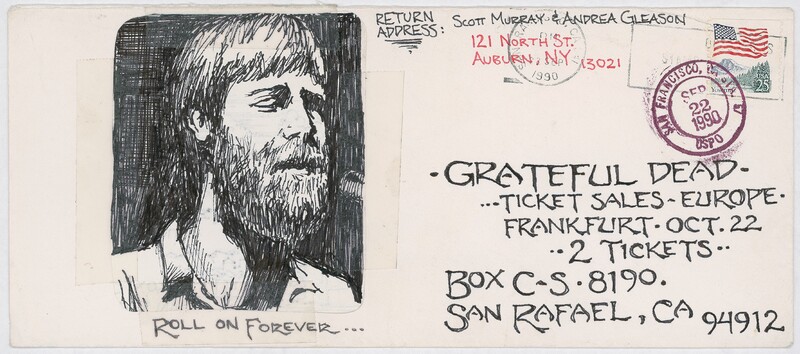 RETURN ADDRESS:
SCOTT MURRAY & ANDREA GLEASON
121 NORTH ST.
AUBURN, NY
13021
1990
USA
25
SAN FRANCISCO, CA
SEP
22
1990
USPO
·GRATEFUL DEAD·
...TICKET SALES~EUROPE·
FRANKFURT·OCT. 22
··2 TICKETS··
BOX C-S·8190.
SAN RAFAEL, CA 94912
ROLL ON FOREVER...